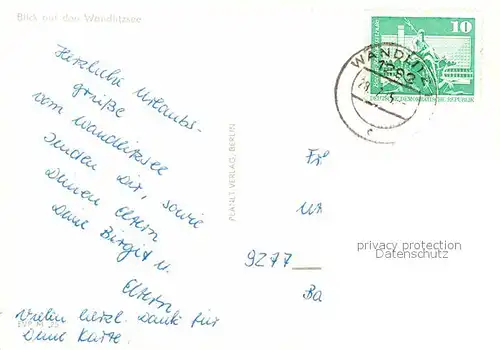 Blick auf den Wandlitzsee
Herzliche Urlaubs-
grüße
vom Wandlitzsee
senden Dir, sowie
Deinen Eltern
Deine Birgit u.
Eltern
Vielen herzl. Dank für
Deine Karte.
EVP M
PLANET-VERLAG, BERLIN
WANDLITZ
10
DEUTSCHE DEMOKRATISCHE REPUBLIK
9277
Ba
privacy protection
Datenschutz